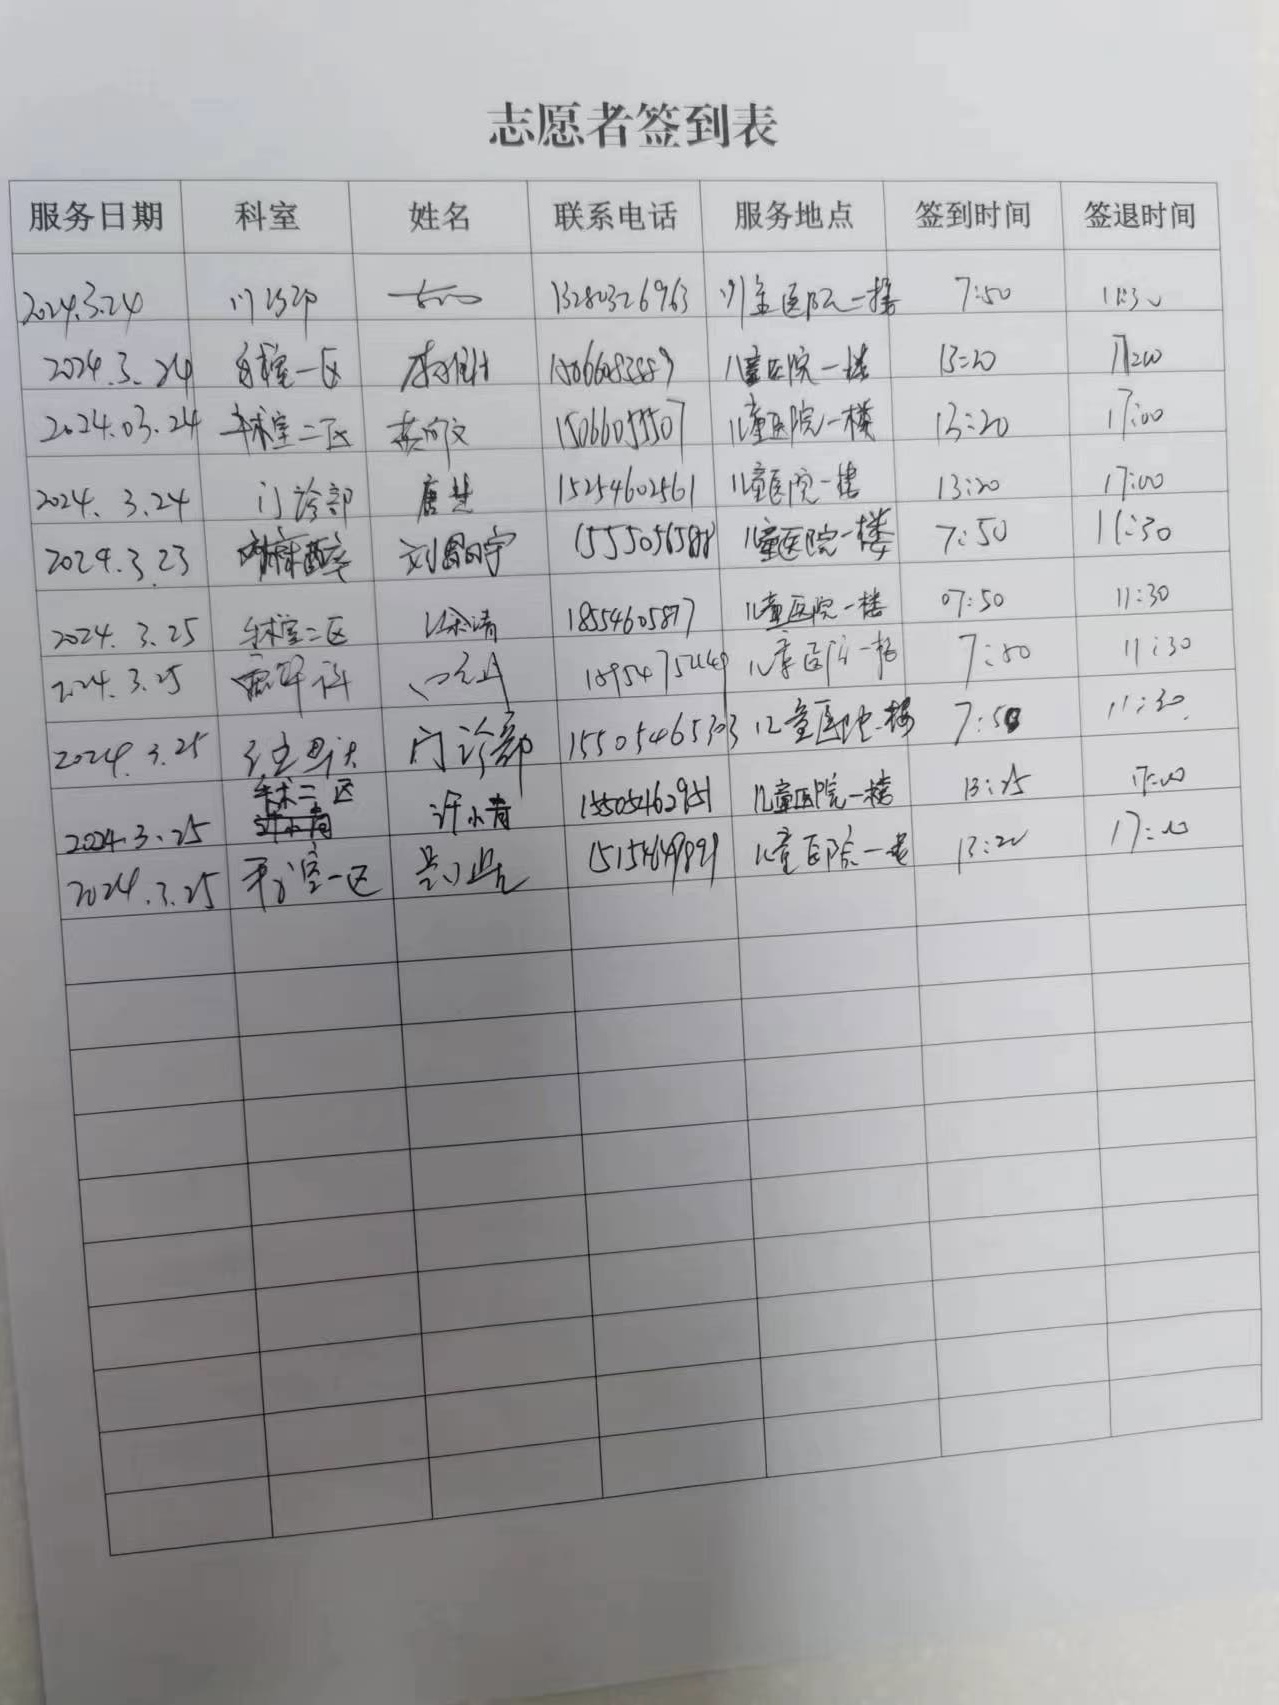 志愿者签到表
服务日期 科室 姓名 联系电话 服务地点 签到时间 签退时间
2024.3.24 门诊部 13280326963 儿童医院一楼 7:50 11:30
2024.3.24 手术室一区 儿童医院一楼 13:20 17:00
2024.03.24 手术室二区 15066055507 儿童医院一楼 13:20 17:00
2024.3.24 门诊部 唐楚 15254602561 儿童医院一楼 13:20 17:00
2024.3.23 儿童医院一楼 7:50 11:30
2024.3.25 手术室二区 徐清 18554605877 儿童医院一楼 07:50 11:30
2024.3.25 儿童医院一楼 7:50 11:30
2024.3.25 门诊部 15505465303 儿童医院一楼 7:50 11:30
2024.3.25 手术二区 许小青 15505462951 儿童医院一楼 13:25 17:00
2024.3.25 手术室一区 儿童医院一楼 13:20 17:00